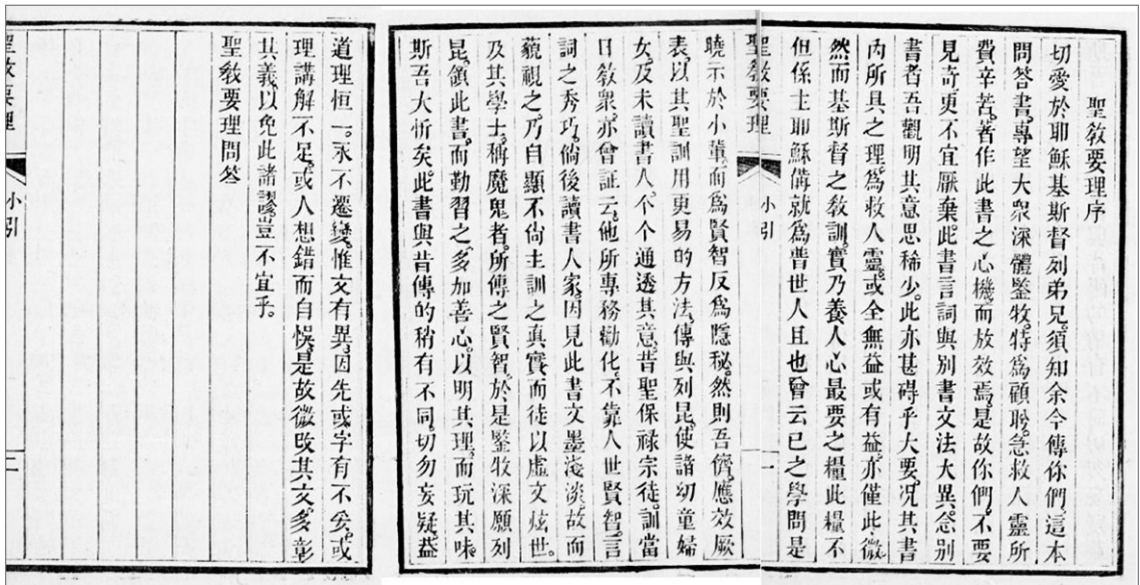 聖教要理序
切愛於耶穌基斯督列弟兄。須知余今傳你們這本
問答書。專望大衆深體鑒牧。特爲顧聆。急救人靈所
費辛苦。者作此書之心機而放效焉。是故你們。不要
見奇更不宜厭棄。此書言詞與別書文法大異。念別
書者吾觀明其意思稀少。此亦甚碍乎大要。況其書
內所具之理。爲救人靈。或全無益或有益。亦僅此微
然而基斯督之教訓。實乃養人心最要之糧此糧不
但係主耶穌備就爲普世人且也曾云已之學問是
聖教要理 小引 一
曉示於小輩。而爲賢智反爲隱秘。然則吾儕。應效厥
表。以其聖訓用更易的方法。傳與列昆。使諸幼童婦
女。及未讀書人。个个通透其意。昔聖保祿宗徒。訓當
日教衆。亦曾証云。他所專務勸化不靠人世賢智。言
詞之秀巧。倘後讀書人家。因見此書文墨淺淡故而
藐視之。乃自顯不尙主訓之真實而徒以虛文炫世。
及其學士。稱魔鬼者。所傳之賢智。於是鑒牧深願列
昆。領此書。而勤習之。多加善心。以明其理。而玩其味。
斯吾大忻矣。此書與昔傳的稍有不同。切勿妄疑。蓋
道理恒一。永不遷變。惟文有異。因先或字有不妥。或
理講解不足。或人想錯而自悞。是故微改其文。多彰
其義。以免此諸謬。豈不宜乎。
聖教要理問答
聖教真理 小引 二